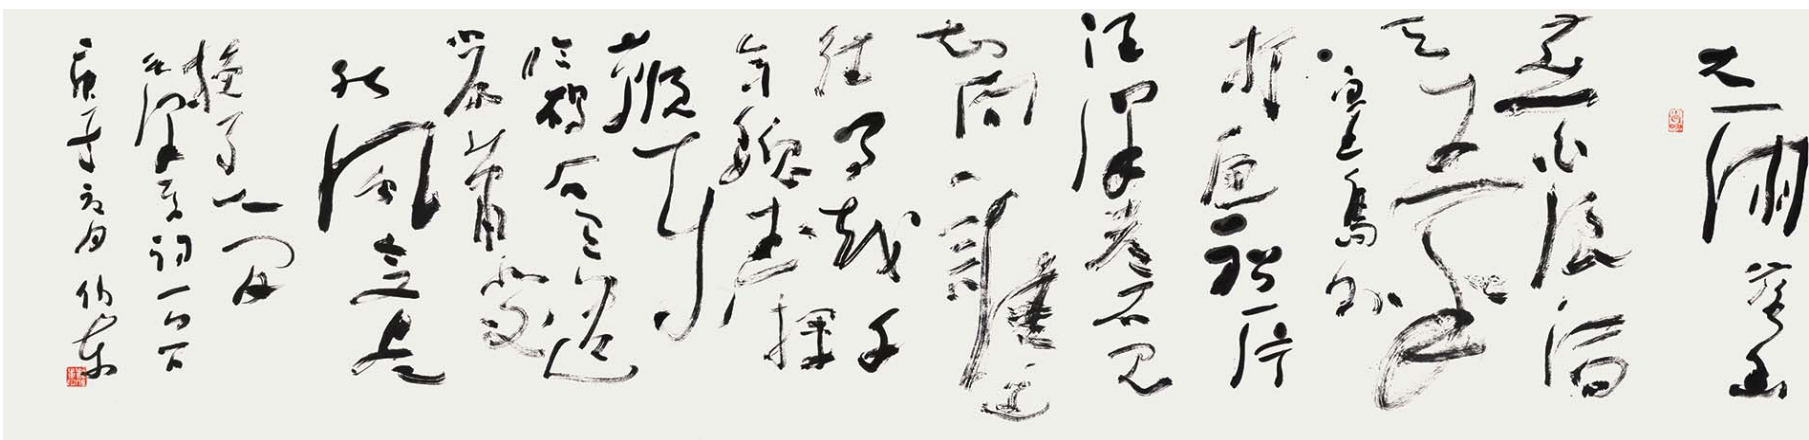 大雨落幽
燕白浪滔
天秦
皇島外
打魚船一片
汪洋都不見
知向誰邊
往事越千
年魏武揮
鞭东
臨碣石有遺
篇蕭瑟
秋風今又是
換了人間
毛澤東詞一首
庚子